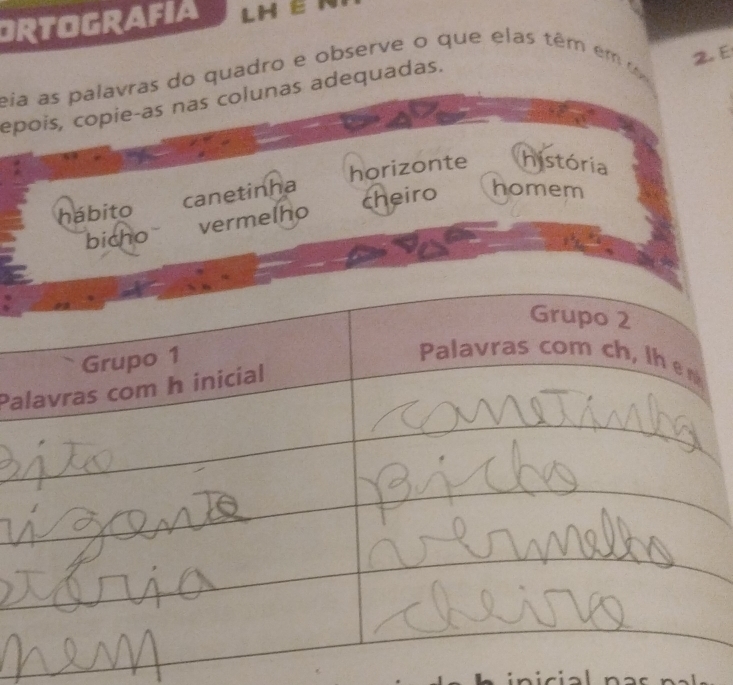 ORTOGRAFIA LH E N
eia as palavras do quadro e observe o que elas têm em
epois, copie-as nas colunas adequadas.
2. E
hábito canetinha horizonte história
bicho vermelho cheiro homem
Grupo 1 Grupo 2
Palavras com h inicial Palavras com ch, lh e n
bito canetinha
rizonte bicho
stória vermelho
mem cheiro
h inicial nas pal